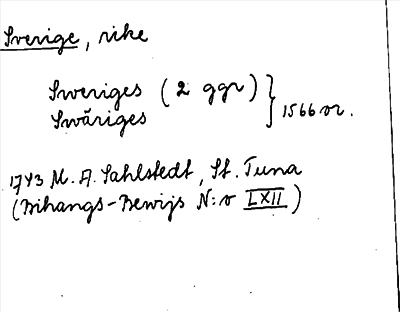 Sverige, rike
Sweriges (2 ggr)
Swäriges } 1566 or.
1743 M. A. Sahlstedt, St. Tuna
(Bihangs-Bewijs N:o LXII)